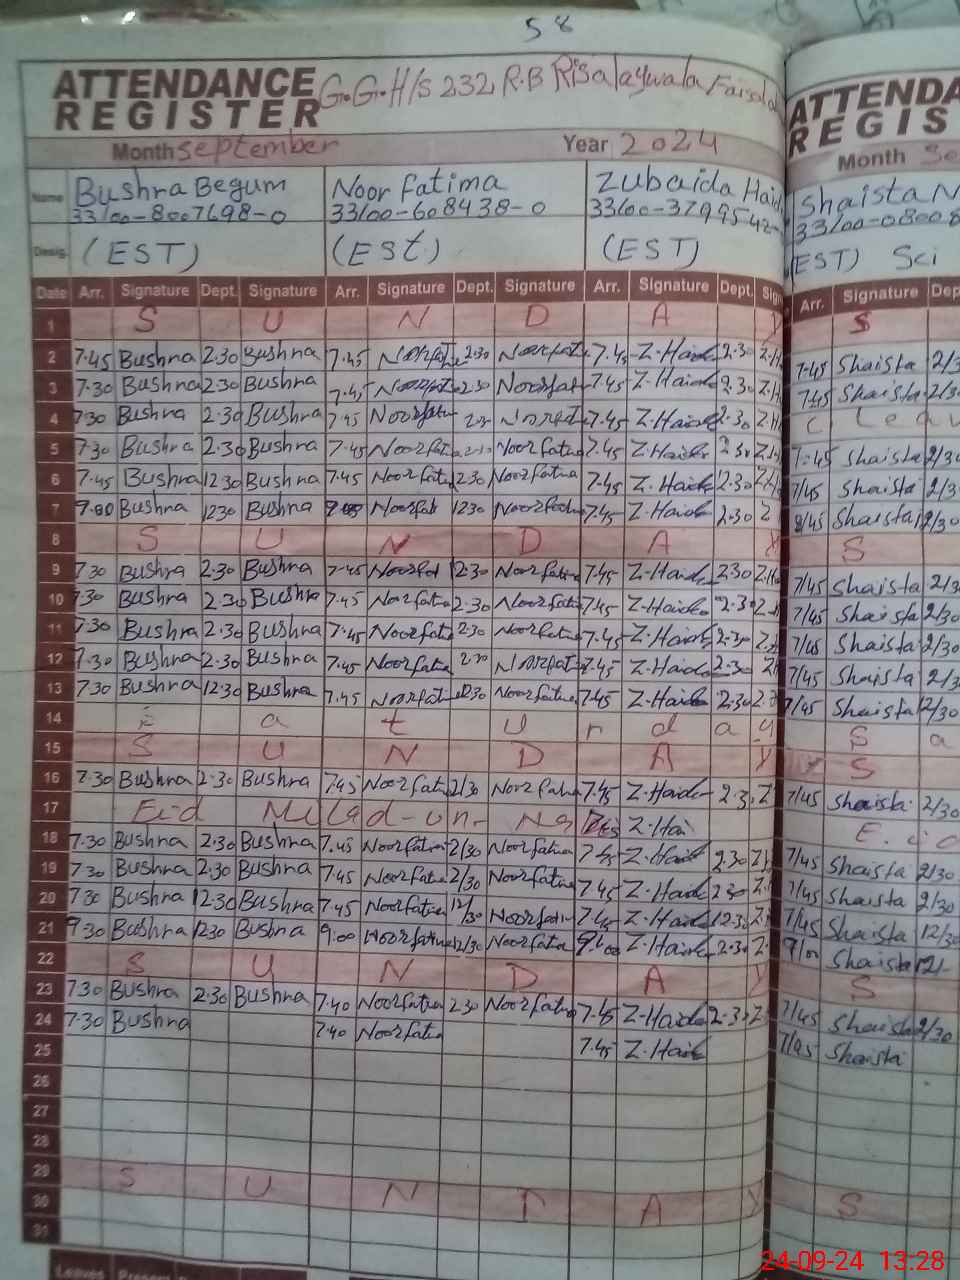 58
ATTENDANCE REGISTER G.G.H/S 232 R.B Risalaywala
Month September Year 2024
Name Bushra Begum Noor Fatima Zubaida
33100-8007698-0 33100-608438-0
Desig. (EST) (ESt) (EST)
Date Arr. Signature Dept. Signature Arr. Signature Dept. Signature Arr. Signature Dept.
1 S U N D A Y
2 7.45 Bushra 2.30 Bushra 7.45 Noorfati 2.30 Noorfati 7.45 Z.Haid 2.30
3 7.30 Bushra 2.30 Bushra 7.45 Noorfati 2.30 Noorfat 7.45 Z.Haid 2.30
4 7.30 Bushra 2.30 Bushra 7.45 Noorfatu 7.45 Z.Haid 2.30
5 7.30 Bushra 2.30 Bushra 7.45 Noorfati Noorfatu 7.45 Z.Haid 2.30
6 7.45 Bushra 12.30 Bushra 7.45 Noorfati 2.30 Noorfatua 7.45 Z.Haid 2.30
7 Bushra 1230 Bushra Noorfat 1230 Noorfath 7.45 Z.Haid 2.30
8 S U N D A Y
9 7.30 Bushra 2.30 Bushra 7.45 Noorfat 12.30 Noorfati 7.45 Z.Haid 2.30
10 7.30 Bushra 2.30 Bushra 7.45 Noorfatu 2.30 Noorfatu 7.45 Z.Haid 2.30
11 7.30 Bushra 2.30 Bushra 7.45 Noorfatu 2.30 Noorfatu 7.45 Z.Haid 2.30
12 7.30 Bushra 2.30 Bushra 7.45 Noorfatu 2.30 Noorfatu 7.45 Z.Haid 2.30
13 7.30 Bushra 12.30 Bushra 7.45 Noorfatu Noorfatu 7.45 Z.Haid 2.30
14 a t u r d a y
15 S U N D A Y
16 7.30 Bushra 2.30 Bushra 7.45 Noorfati 2/30 Noorfatu 7.45 Z.Haid 2.3
17 Eid Milad-un- Na Z.Hai
18 7.30 Bushra 2.30 Bushra 7.45 Noorfatua 2/30 Noorfatua 7.45 Z.Haid 2.30
19 7.30 Bushra 2.30 Bushra 7.45 Noorfatu 2/30 Noorfatua 7.45 Z.Haid 2.30
20 7.30 Bushra 12.30 Bushra 7.45 Noorfatua 12/30 Noorfatu 7.45 Z.Haid 12.30
21 9.30 Bushra 1230 Bushra 9.00 Noorfatua 12/30 Noorfatua Z.Haid 2.30
22 S U N D A Y
23 7.30 Bushra 2.30 Bushra 7.40 Noorfatua 2.30 Noorfatua 7.45 Z.Haid 2.30
24 7.30 Bushra 7.40 Noorfatua 7.45 Z.Haid
25
26
27
28
29 S U N D A Y
30
31
Leaves Present
ATTENDA
REGIS
Month Se
Shaista N
33100-0800
(EST) Sci
Arr. Signature Dep
S
7/45 Shaista 2/3
7/45 Shaista 2/30
C Leav
7/45 Shaista 2/30
7/45 Shaista 2/3
8/45 Shaista 12/30
S
7/45 Shaista 2/3
7/45 Shaista 2/30
7/45 Shaista 2/30
7/45 Shaista 2/3
7/45 Shaista 12/30
S a
S
7/45 Shaista 2/30
E. i
7/45 Shaista 2/30
7/45 Shaista 2/30
7/45 Shaista 12/30
9/00 Shaista 12/
S
7/45 Shaista 2/30
7/45 Shaista
S
24-09-24 13:28